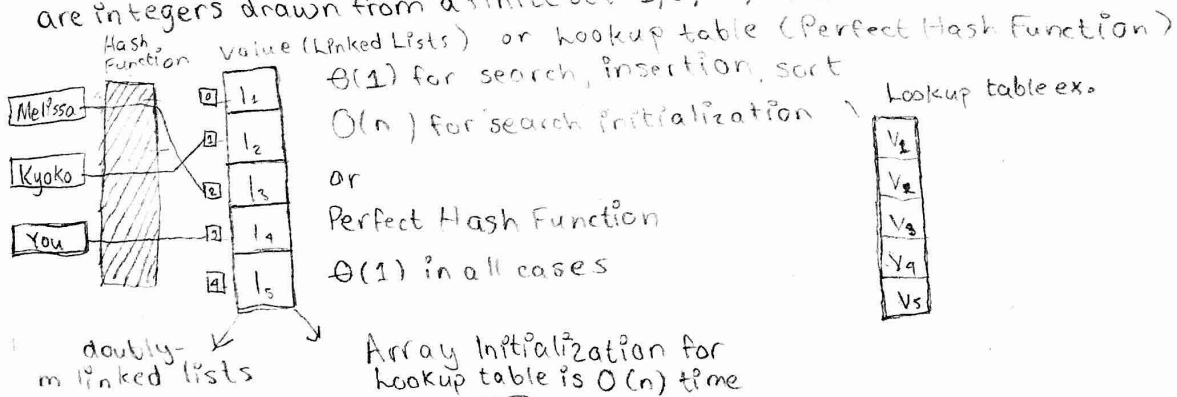 are integers drawn from a finite set
Hash Function
Value (Linked Lists) or Lookup table (Perfect Hash Function)
Melissa
Kyoko
You
0
1
2
3
4
l1
l2
l3
l4
l5
Θ(1) for search, insertion, sort
O(n) for search initialization
or
Perfect Hash Function
Θ(1) in all cases
Lookup table ex.
V1
V2
V3
V4
V5
doubly-
m linked lists
Array Initialization for
Lookup table is O(n) time